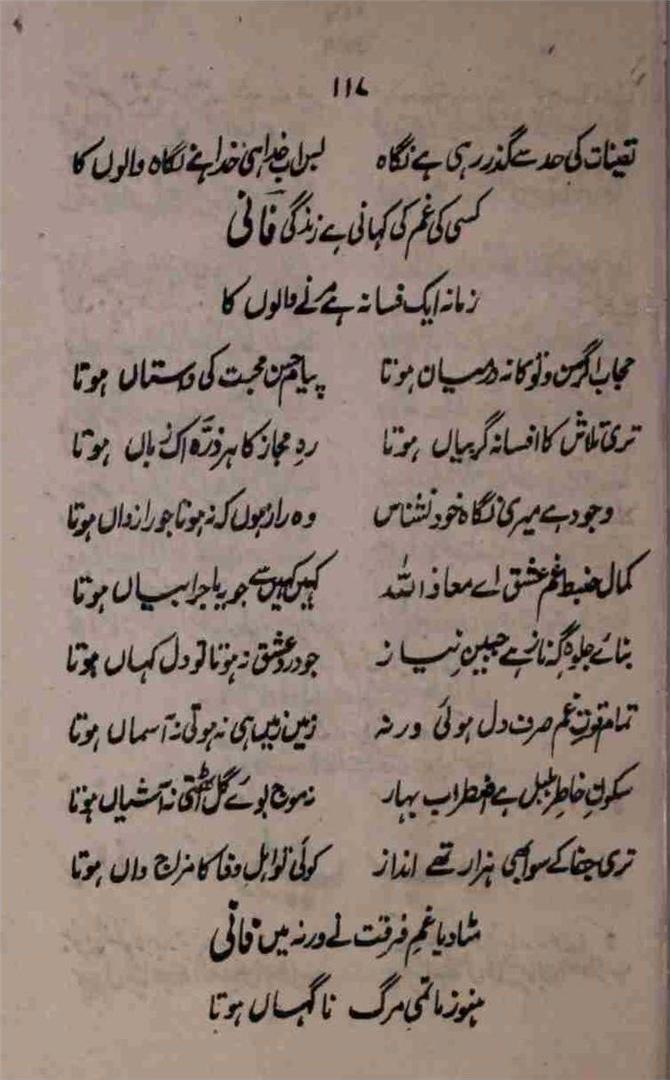 ۱۱۷
تعینات کی حد سے گذر رہی ہے نگاہ بس اب خدا ہی خدا ہے نگاہ والوں کا
کسی کی غم کی کہانی ہے زندگی فانیؔ
زمانہ ایک فسانہ ہے مرنے والوں کا
حجاب اگر من و تو کا نہ درمیان ہوتا پیام حسن محبت کی داستاں ہوتا
تری تلاش کا افسانہ گر بیاں ہوتا رہِ مجاز کا ہر ذرّہ اک زباں ہوتا
وجود ہے میری نگاہ خود نشناس وہ راز ہوں کہ نہ ہوتا جو رازداں ہوتا
کمال ضبط غم عشق اے معاذ اللہ کہیں کہیں سے جو یا جرا بیاں ہوتا
بنائے جلوہ گہ ناز ہے جبینِ نیاز جو درد عشق نہ ہوتا تو دل کہاں ہوتا
تمام قوتِ غم صرف دل ہوئی ورنہ زمین زمیں ہی نہ ہوتی نہ آسماں ہوتا
سکونِ خاطر بلبل ہے اضطرابِ بہار نہ موج بوئے گل اٹھتی نہ آشیاں ہوتا
تری جفا کے سوا بھی ہزار تھے انداز کوئی تو اہلِ وفا کا مزاج داں ہوتا
مٹا دیا غمِ فرقت نے ورنہ میں فانی
ہنوز ماتمیِ مرگ ناگہاں ہوتا